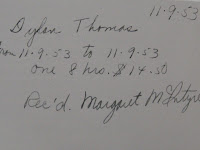 11-9-53
Dylan Thomas
From 11-9-53 to 11-9-53
one 8 hrs. $14.50
Rec'd. Margaret McIntyre